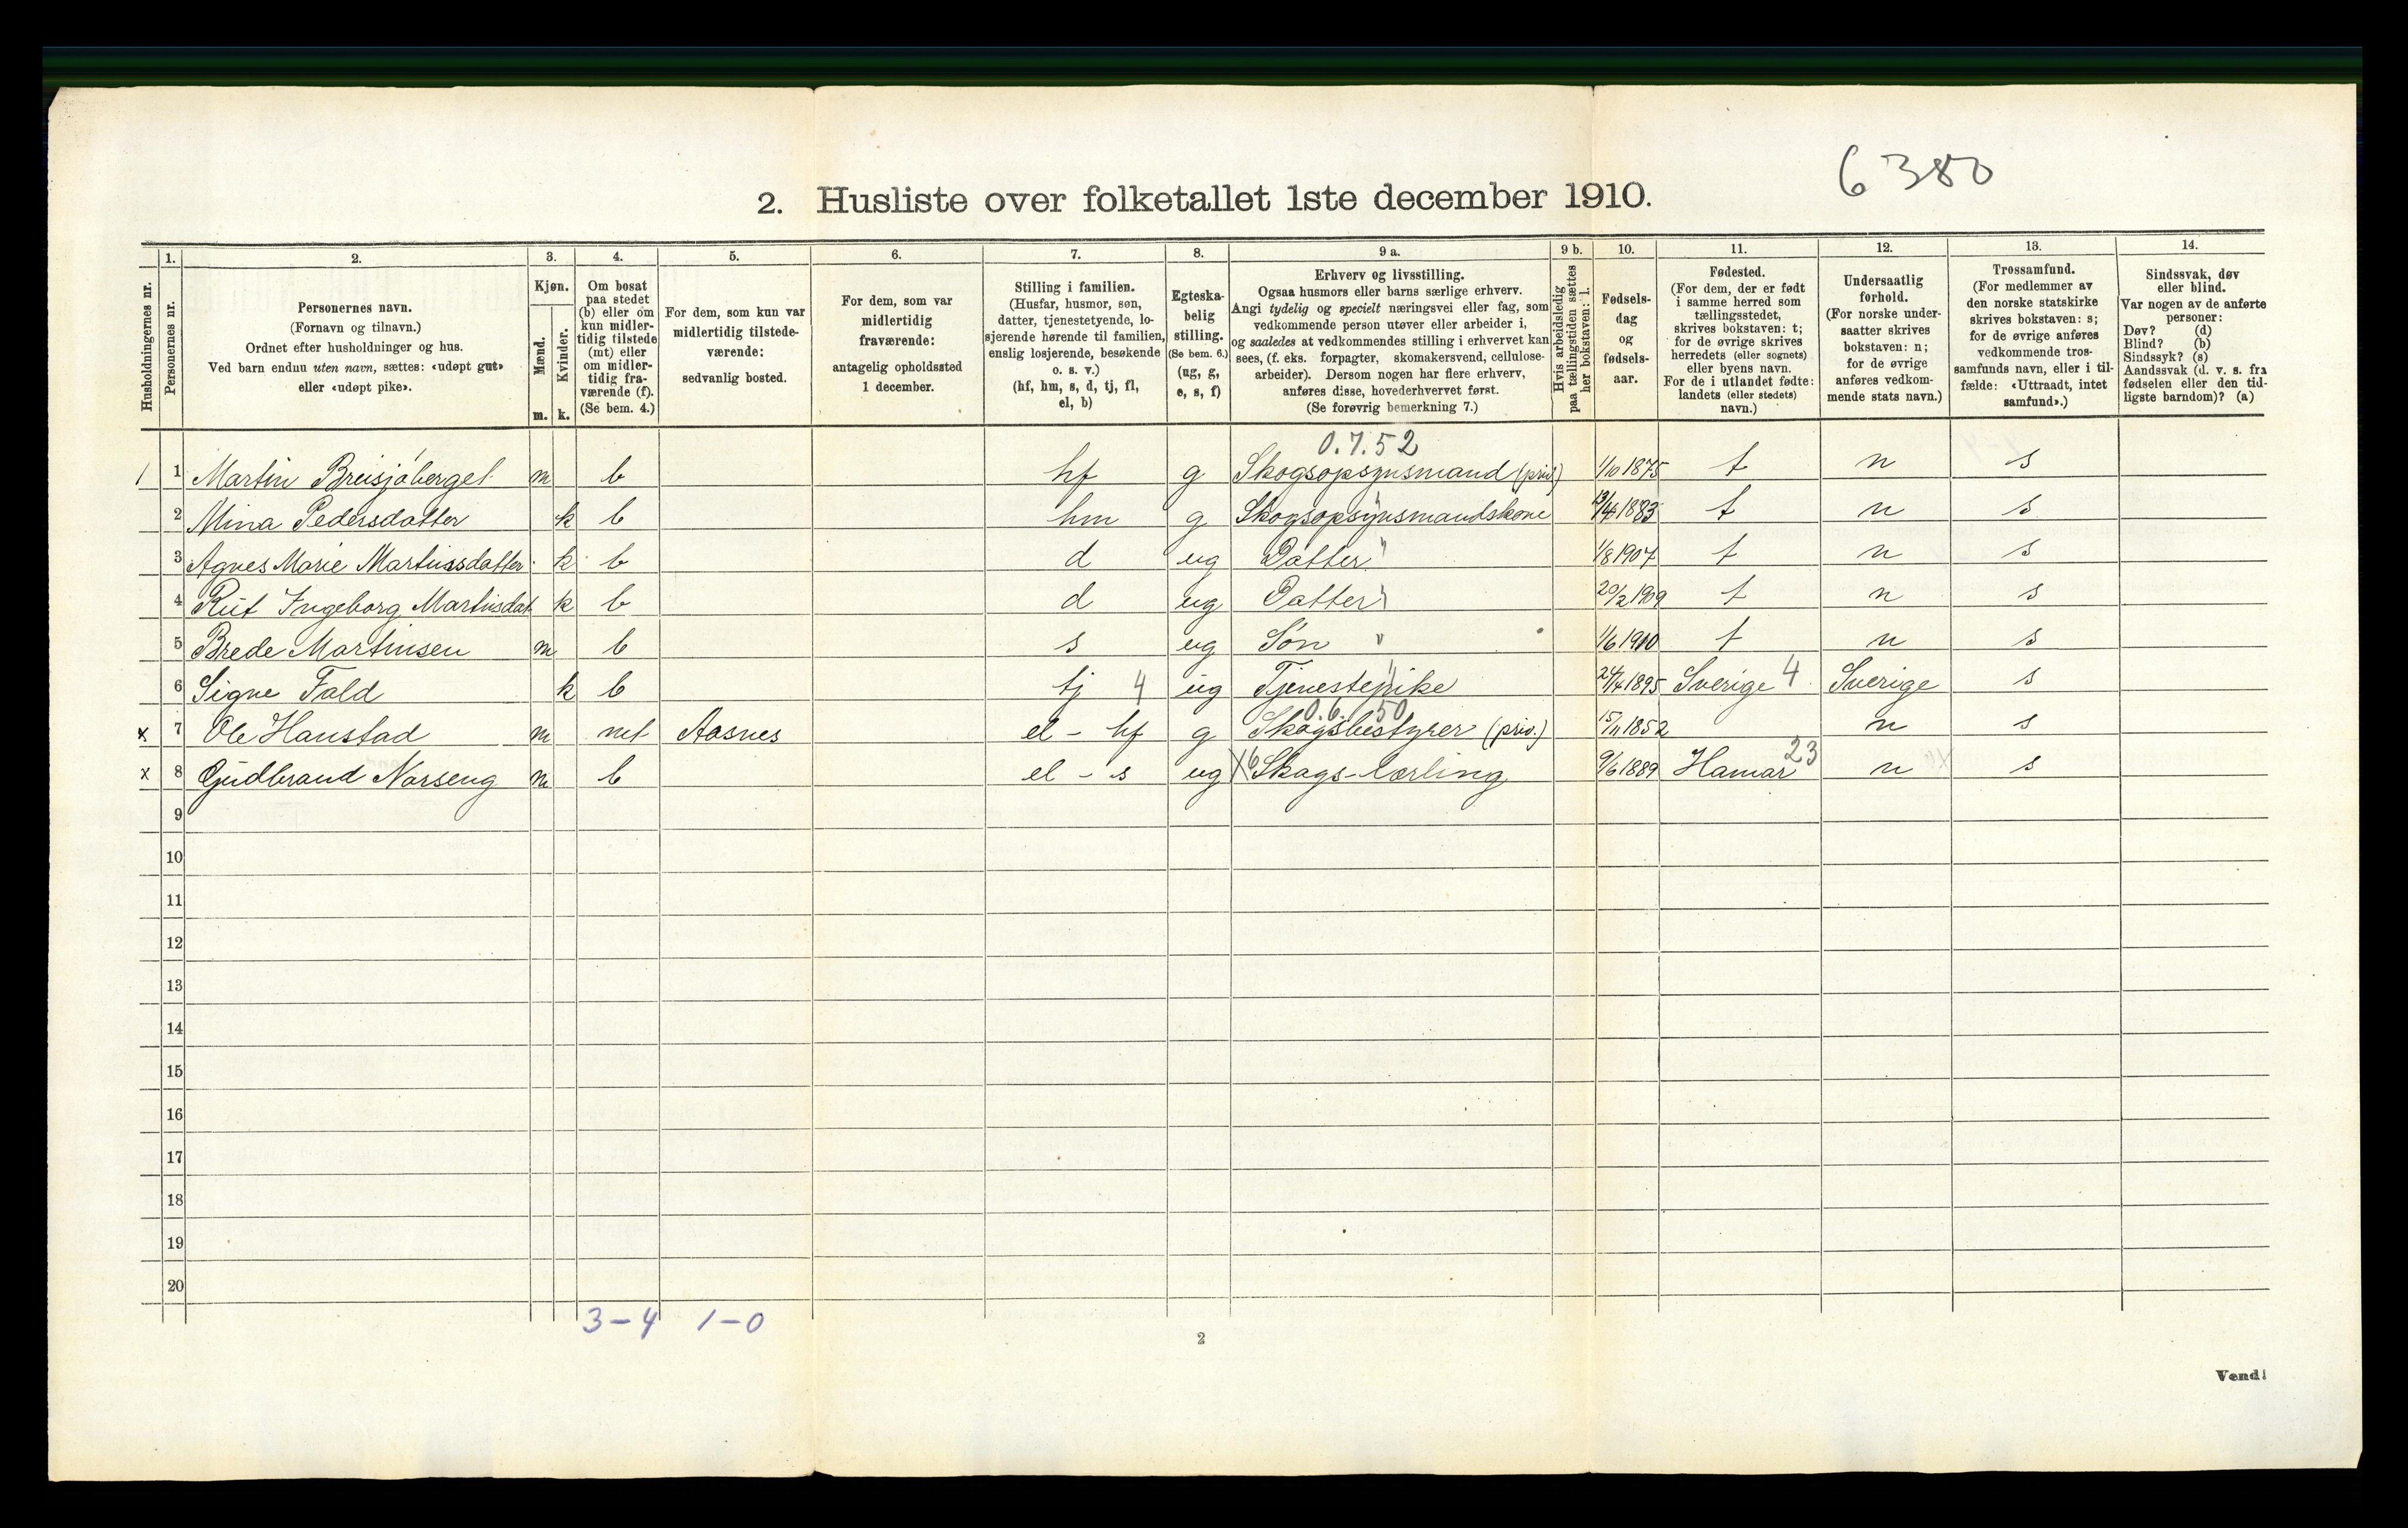 6380
2. Husliste over folketallet 1ste december 1910.
Husholdningernes nr.
1. Personernes nr.
2. Personernes navn.
(Fornavn og tilnavn.)
Ordnet efter husholdninger og hus.
Ved barn endnu uten navn, sættes: «udøpt gut»
eller «udøpt pike».
3. Kjøn.
Mænd. m.
Kvinder. k.
4. Om bosat
paa stedet
(b) eller om
kun midler-
tidig tilstede
(mt) eller
om midler-
tidig fra-
værende (f).
(Se bem. 4.)
5. For dem, som kun var
midlertidig tilstede-
værende:
sedvanlig bosted.
6. For dem, som var
midlertidig
fraværende:
antagelig opholdssted
1 december.
7. Stilling i familien.
(Husfar, husmor, søn,
datter, tjenestetyende, lo-
sjerende hørende til familien,
enslig losjerende, besøkende
o. s. v.)
(hf, hm, s, d, tj, fl,
el, b)
8. Egteska-
belig
stilling.
(Se bem. 6.)
(ug, g,
e, s, f)
9 a. Erhverv og livsstilling.
Ogsaa husmors eller barns særlige erhverv.
Angi tydelig og specielt næringsvei eller fag, som
vedkommende person utøver eller arbeider i,
og saaledes at vedkommendes stilling i erhvervet kan
sees, (f. eks. forpagter, skomakersvend, cellulose-
arbeider). Dersom nogen har flere erhverv,
anføres disse, hovederhvervet først.
(Se forøvrig bemerkning 7.)
9 b. Hvis arbeidsledig
paa tællingstiden sættes
her bokstaven: l.
10. Fødsels-
dag
og
fødsels-
aar.
11. Fødested.
(For dem, der er født
i samme herred som
tællingsstedet,
skrives bokstaven: t;
for de øvrige skrives
herredets (eller sognets)
eller byens navn.
For de i utlandet fødte:
landets (eller stedets)
navn.)
12. Undersaatlig
forhold.
(For norske under-
saatter skrives
bokstaven: n;
for de øvrige
anføres vedkom-
mende stats navn.)
13. Trossamfund.
(For medlemmer av
den norske statskirke
skrives bokstaven: s;
for de øvrige anføres
vedkommende tros-
samfunds navn, eller i til-
fælde: «Uttraadt, intet
samfund».)
14. Sindssvak, døv
eller blind.
Var nogen av de anførte
personer:
Døv? (d)
Blind? (b)
Sindssyk? (s)
Aandssvak (d. v. s. fra
fødselen eller den tid-
ligste barndom)? (a)
0.7.52
1 1 Martin Breisjøberget m b hf g Skogsopsynsmand (priv) 1/10 1875 t n s
2 Mina Pedersdatter k b hm g Skogsopsynsmandskone 13/4 1883 t n s
3 Agnes Marie Martinsdatter k b d ug Datter " 1/8 1907 t n s
4 Rut Ingeborg Martinsdat k b d ug Datter " 20/2 1909 t n s
5 Brede Martinsen m b s ug Søn " 1/6 1910 t n s
6 Signe Fald k b tj 4 ug Tjenestepike 24/4 1895 Sverige 4 Sverige s
0.6.50
x 7 Ole Hanstad m mt Aasnes el - hf g Skogsbestyrer (priv.) 15/11 1852 n s
x 8 Gudbrand Norseng m b el - s ug X6 Skogs-lærling 9/6 1889 Hamar 23 n s
9
10
11
12
13
14
15
16
17
18
19
20
3-4 1-0
2
Vend!